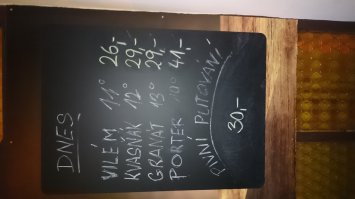 DNES
VILÉM 11° 26,-
KVASŇÁK 12° 29,-
GRANÁT 13° 29,-
PORTER 41,-
PIVNÍ PUTOVÁNÍ
30,-